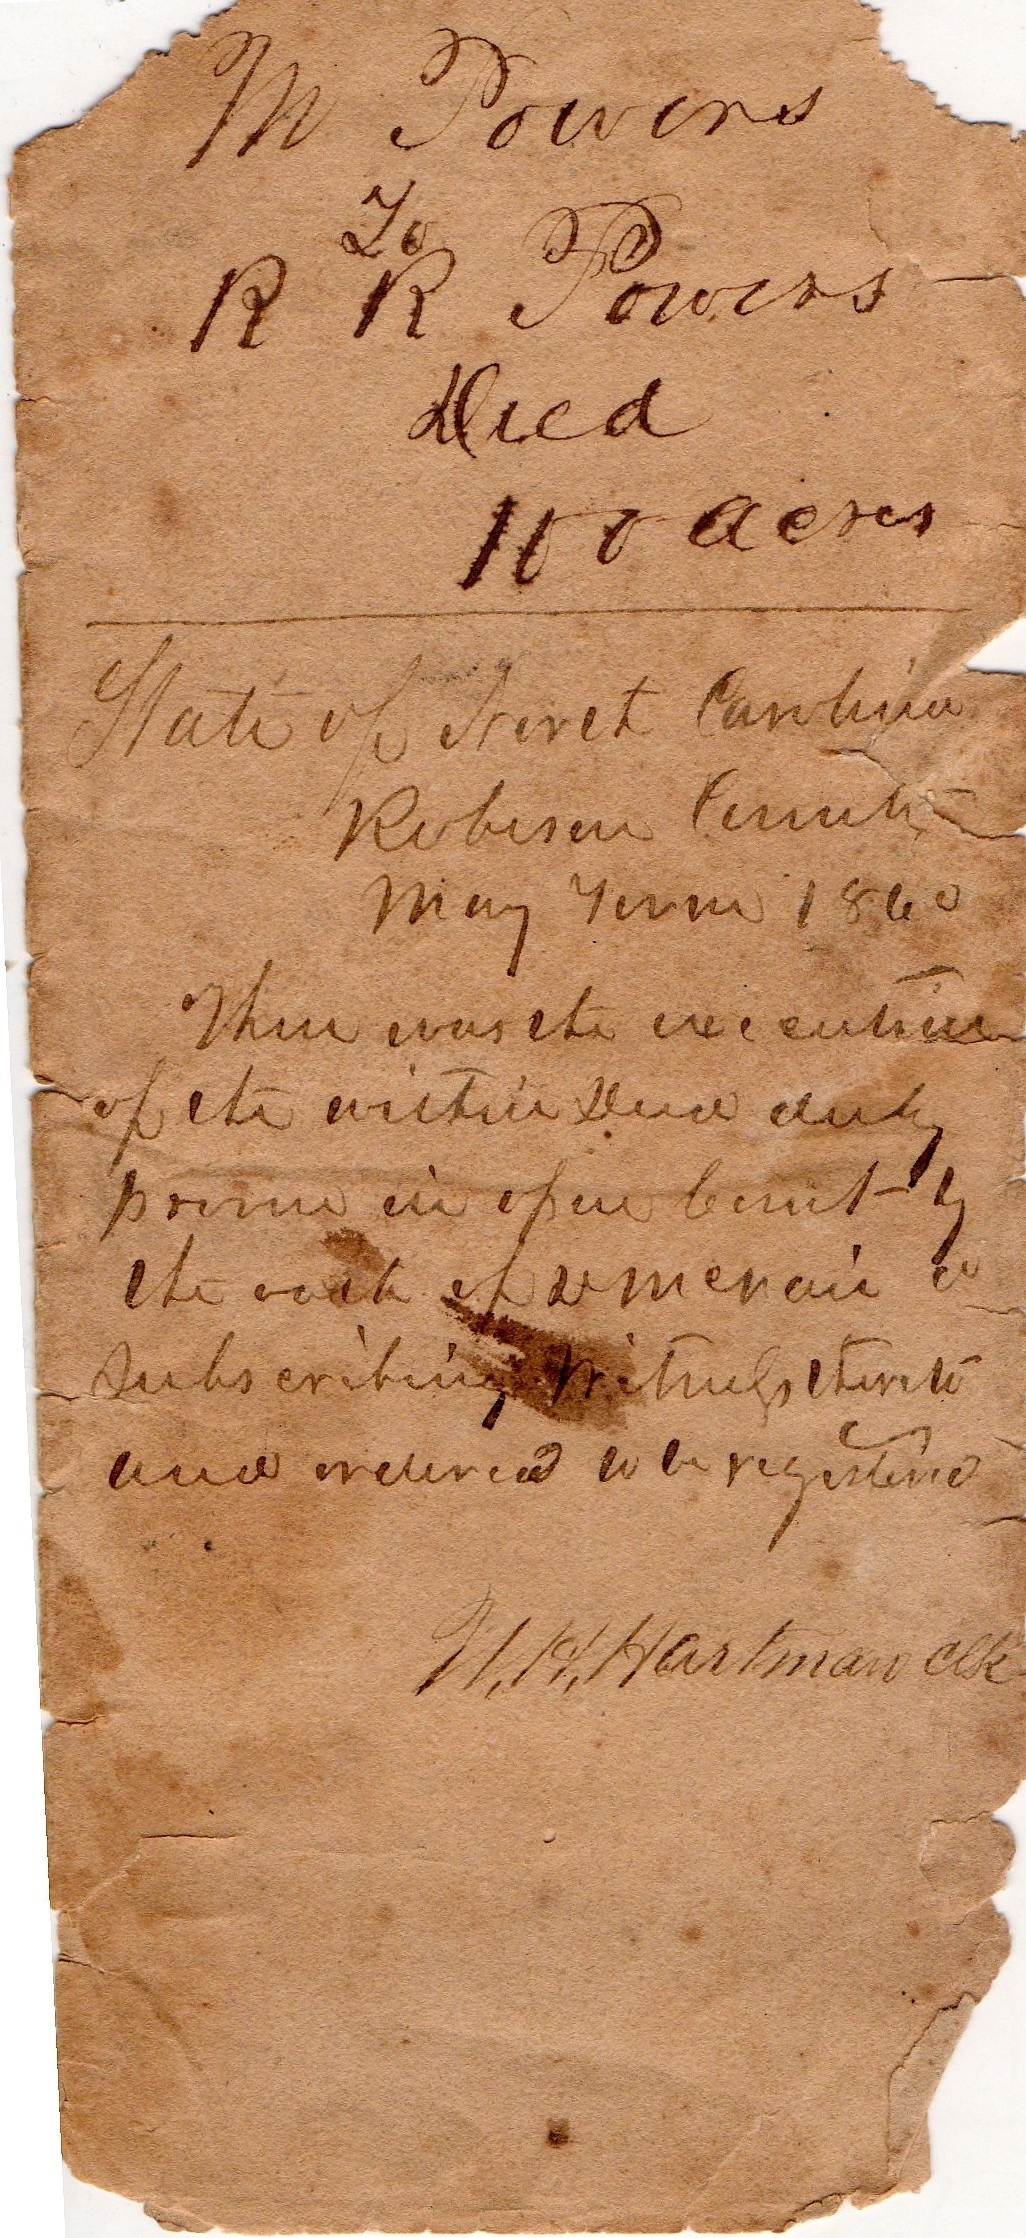 M Powers
To
R R Powers
Deed
100 acres
State of North Carolina
Robeson County
May Term 1860
Then was the execution
of the within Deed duly
proven in open Court by
the oath of McNair a
subscribing Witness thereto
and ordered to be registered
H. Hartman Clk